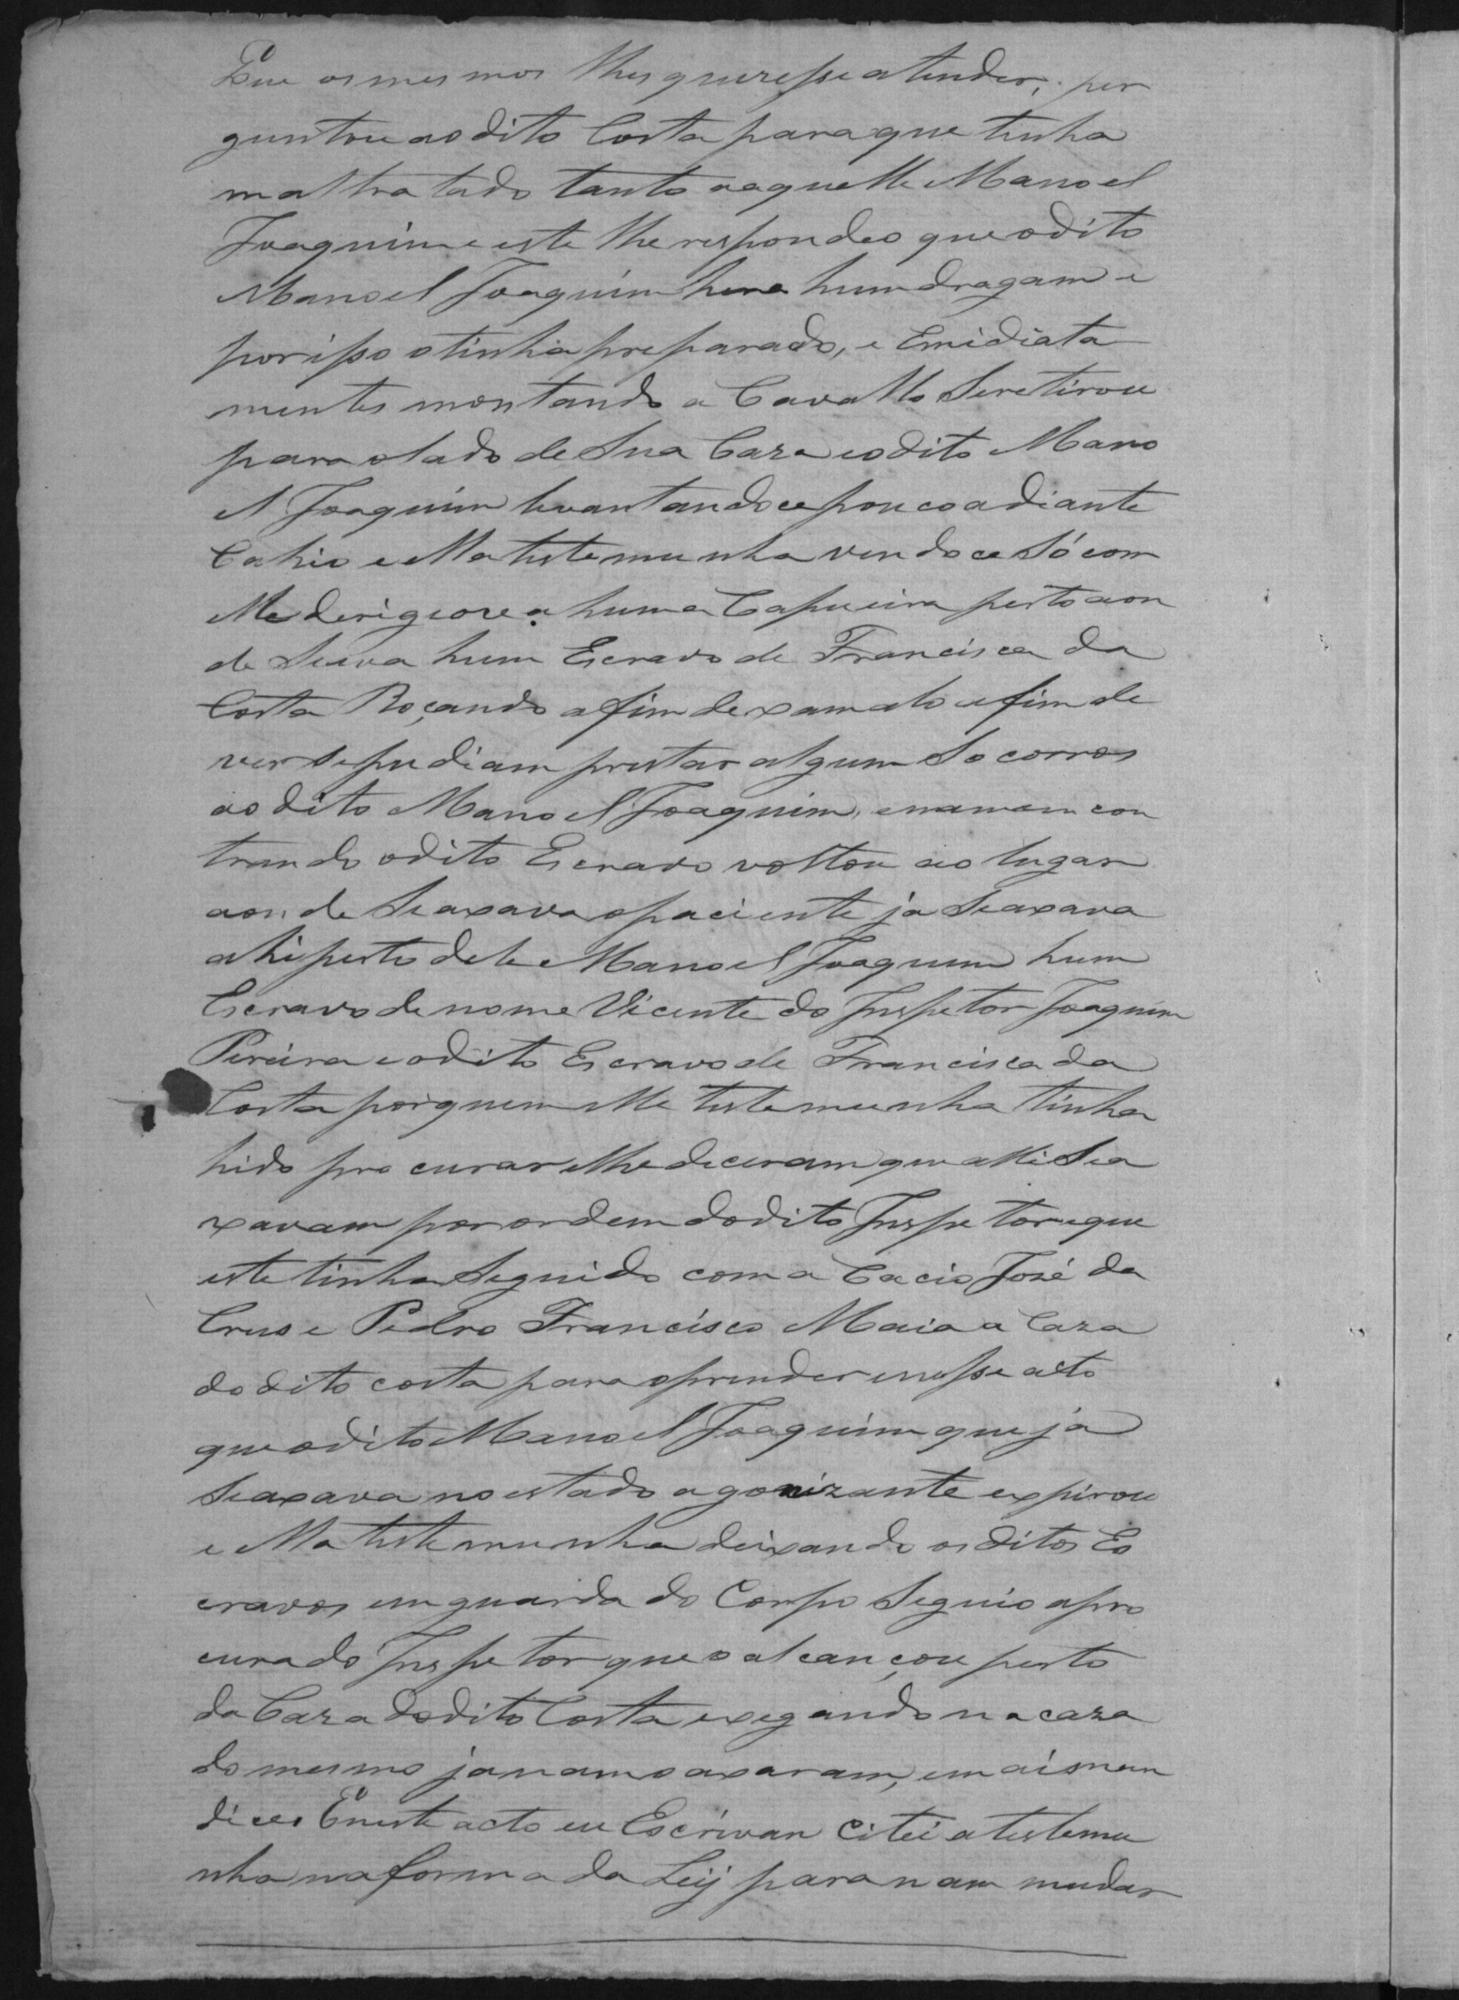 Que os mesmos lhes quizesse atender, per
guntou ao dito Costa para que tinha
maltratado tanto aaquelle Manoel
Joaquim e este lhe respondeo que o dito
Manoel Joaquim hera hum dragam e
por isso o tinha preparado, e Emidiata
mentes montando a Cavallo Se retirou
para o lado de Sua Caza e o dito Mano
el Joaquim levantandoce pouco adiante
Cahio e Ella testemunha vendoce Só com
Elle derigiose a huma Capueira perto aon
de Seava hum Escravo de Francisca da
Costa Roçando afim de xamalo afim de
ver Se pudiam prestar algum Socorros
ao dito Manoel Joaquim, e nam encon
trando o dito Escravo voltou ao lugar
aonde Seaxava o paciente ja Seaxava
ahi perto dele Manoel Joaquim hum
Escravo de nome Vicente do Inspetor Joaquim
Pereira e o dito Escravo de Francisca da
Costa por quem Elle testemunha tinha
hido procurar e lhe diceram que alli Sea
xavam por ordem do dito Inspetor e que
este tinha Seguido com a Cacio José da
Crus e Pedro Francisco Maia a Caza
do dito costa para o prender e nesse acto
que o dito Manoel Joaquim que ja
Seaxava no estado agonizante expirou
e Ella testemunha deixando os ditos Es
cravos em guarda do Corpo Seguio apro
cura do Inspetor que o alcançou perto
da Caza do dito Costa e xegando na caza
do mesmo ja nam o axaram, e mais nam
dices E neste acto eu Escrivan Citei a testemu
nha na forma da Leij para nam mudar